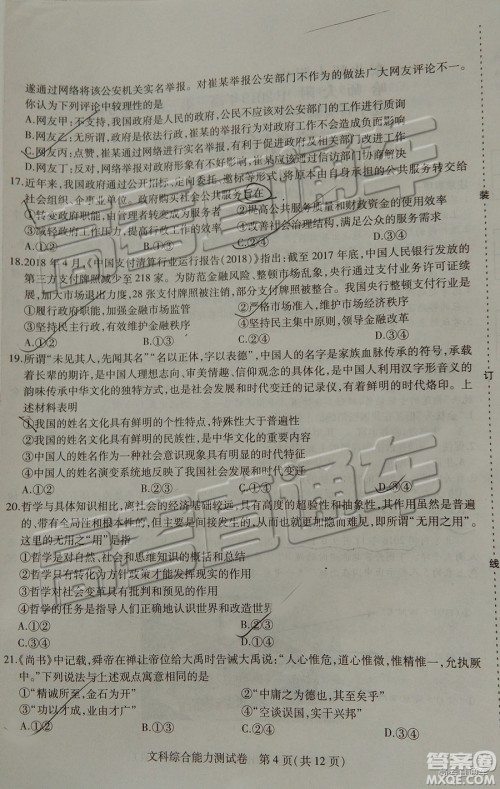 遂通过网络将该公安机关实名举报。对崔某举报公安部门不作为的做法广大网友评论不一。
你认为下列评论中较理性的是
A.网友甲:不支持,我国政府是人民的政府,公民不应对公安部门的工作进行质询
B.网友乙:无所谓,崔某的行为对政府的工作不会造成负面影响
C.网友丙:点赞,崔某的举报有利于监督和促进政府严格执法
D.网友丁:
17.近年来,我国政府通过公开招标、定向委托、邀标等形式,将原本由自身承担的公共服务转交给
社会组织、企事业单位。政府购买社会公共服务旨在
①转变政府职能,由管理者转变成为服务者
②提高公共服务质量和财政资金的使用效率
③减轻政府压力,提升政府形象和权威
④改善社会治理结构,满足公众多元需求
A.①②
B.①③
C.②④
D.③④
18.2018年4月,《中国支付清算行业运行报告(2018)》指出:截至2017年底,中国人民银行发放的
第三方支付牌照减少到218家。为防范金融风险、整顿市场乱象,央行严格支付业务许可证续
展,加大市场退出力度,28张支付牌照被注销。材料表明,我国央行整顿支付行业是
①履行政府职能,加强金融市场监管
②严格市场准入,维护市场经济秩序
③坚持依法行政,有效化解金融风险
④坚持民主集中原则,引领金融改革
A.①②
B.①④
C.②③
D.③④
19.所谓“未见其人,先闻其名”“名以正体,字以表德”,中国人的名字是家族血脉传承的符号,承载着
长辈的期许,是中国人理想志向、审美情趣、信仰观念的具体体现。中国人利用汉字形音义的
韵味传承中华文化的独特方式,也是社会发展和时代变迁的记录仪,有着鲜明的时代烙印。上
述材料表明
①我国的姓名文化具有鲜明的个性特点,特殊性大于普遍性
②我国的姓名文化具有鲜明的民族性,是中华文化的重要组成部分
③中国人的姓名作为一种社会意识现象具有相对独立性
④中国人的姓名演变系统地反映了我国社会的发展和时代变迁
A.①②
B.①④
C.②③
D.③④
20.哲学与具体知识相比,离社会的经济基础较远,具有高度的超验性和抽象性,其作用虽然是普遍
的、带有全局和根本性的,但主要是一种间接发生的、从长远看才能起到的作用,即所谓“无用之用”。
这里的无用之“用”是指
①哲学是对自然、社会和思维知识的概括和总结
②哲学只有转化为方针政策其功能才可实现
③哲学对社会变革具有批判和预见的作用
④哲学的任务是指导人们正确地认识世界和改造世界
A.①②
B.①④
C.②③
D.③④
21.《尚书》中记载,舜帝在禅让帝位给大禹时告诫大禹说:“人心惟危,道心惟微,惟精惟一,允执厥
中。”下列说法与上述观点寓意相同的是
①“精诚所至,金石为开”
②“中庸之为德,其大矣”
③“功以才成,业由才广”
④“空谈误国,实干兴邦”
A.①②
B.①④
C.②③
D.③④
文科综合能力测试卷 第4页(共12页)
装
订
线
高考直通车
答案圈
MXQE.COM